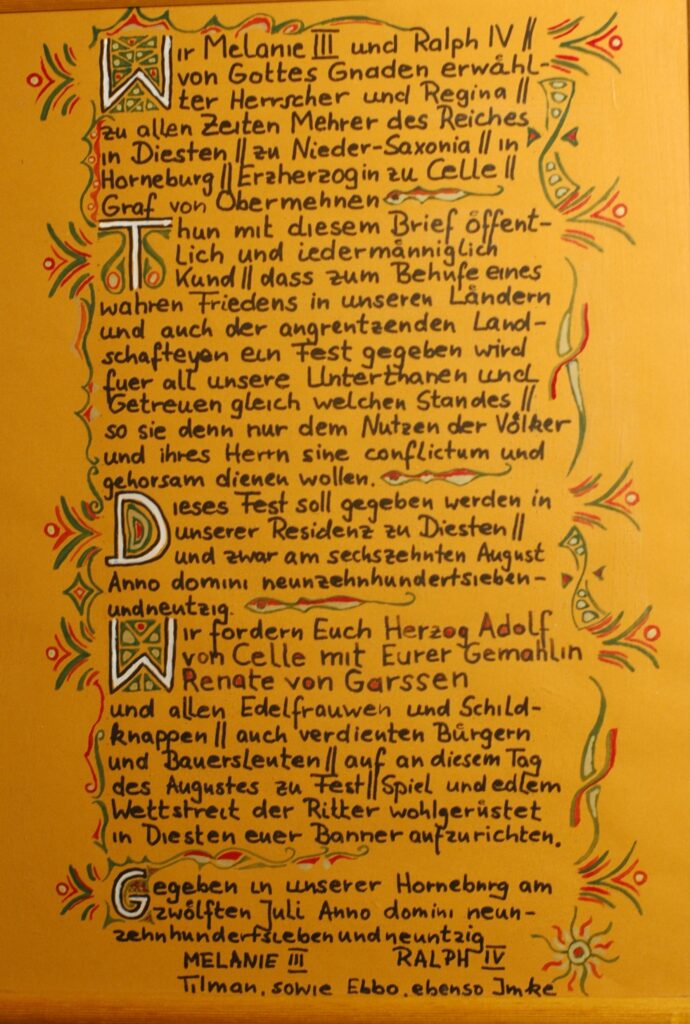 Wir Melanie III und Ralph IV //
von Gottes Gnaden erwåhl-
ter Herrscher und Regina //
zu allen Zeiten Mehrer des Reiches
in Diesten // zu Nieder-Saxonia // in
Horneburg // Erzherzogin zu Celle //
Graf von Obermehnen
Thun mit diesem Brief öffent-
lich und iedermånniglich
Kund // dass zum Behufe eines
wahren Friedens in unseren Låndern
und auch der angrentzenden Land-
schafteyen ein Fest gegeben wird
fuer all unsere Unterthanen und
Getreuen gleich welchen Standes //
so sie denn nur dem Nutzen der Völker
und ihres Herrn sine conflictum und
gehorsam dienen wollen.
Dieses Fest soll gegeben werden in
unserer Residenz zu Diesten //
und zwar am sechszehnten August
Anno domini neunzehnhundertsieben-
undneutzig.
Wir fordern Euch Herzog Adolf
von Celle mit Eurer Gemahlin
Renate von Garssen
und allen Edelfrauwen und Schild-
knappen // auch verdienten Bürgern
und Bauersleuten // auf an diesem Tag
des Augustes zu Fest // Spiel und edlem
Wettstreit der Ritter wohlgerüstet
in Diesten euer Banner aufzurichten.
Gegeben in unserer Horneburg am
zwölften Juli Anno domini neun-
zehnhundertsiebenundneuntzig
MELANIE III RALPH IV
Tilman, sowie Ebbo, ebenso Imke